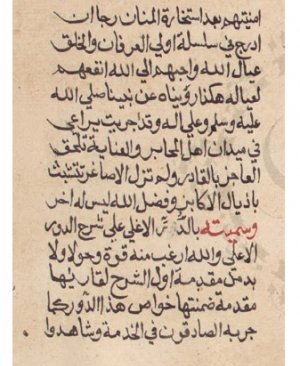 امنيتهم بعد استخارة المنان رجا ان
ادرج في سلسلة اولي العرفان والخلق
عيال الله واحبهم الي الله انفعهم
لعياله هكذا رؤيناه عن نبينا صلي الله
عليه وسلم وعلي اله وقد اجريت يراعي
في ميدان اهل المحابر والعناية تلحق
العاجز بالقادر ولم تزل الاصاغر تتشبث
باذيال الاكابر وفضل الله ليس له اخر
وسميته بالدر الاغلي علي شرح الدور
الاعلي والله ارغب منه قوة وحولا ولا
بد من مقدمة اول الشرح لقاريها
مقدمة ضمنتها خواص هذا الدور كما
جربه الصادقون في الخدمة وشاهدوا